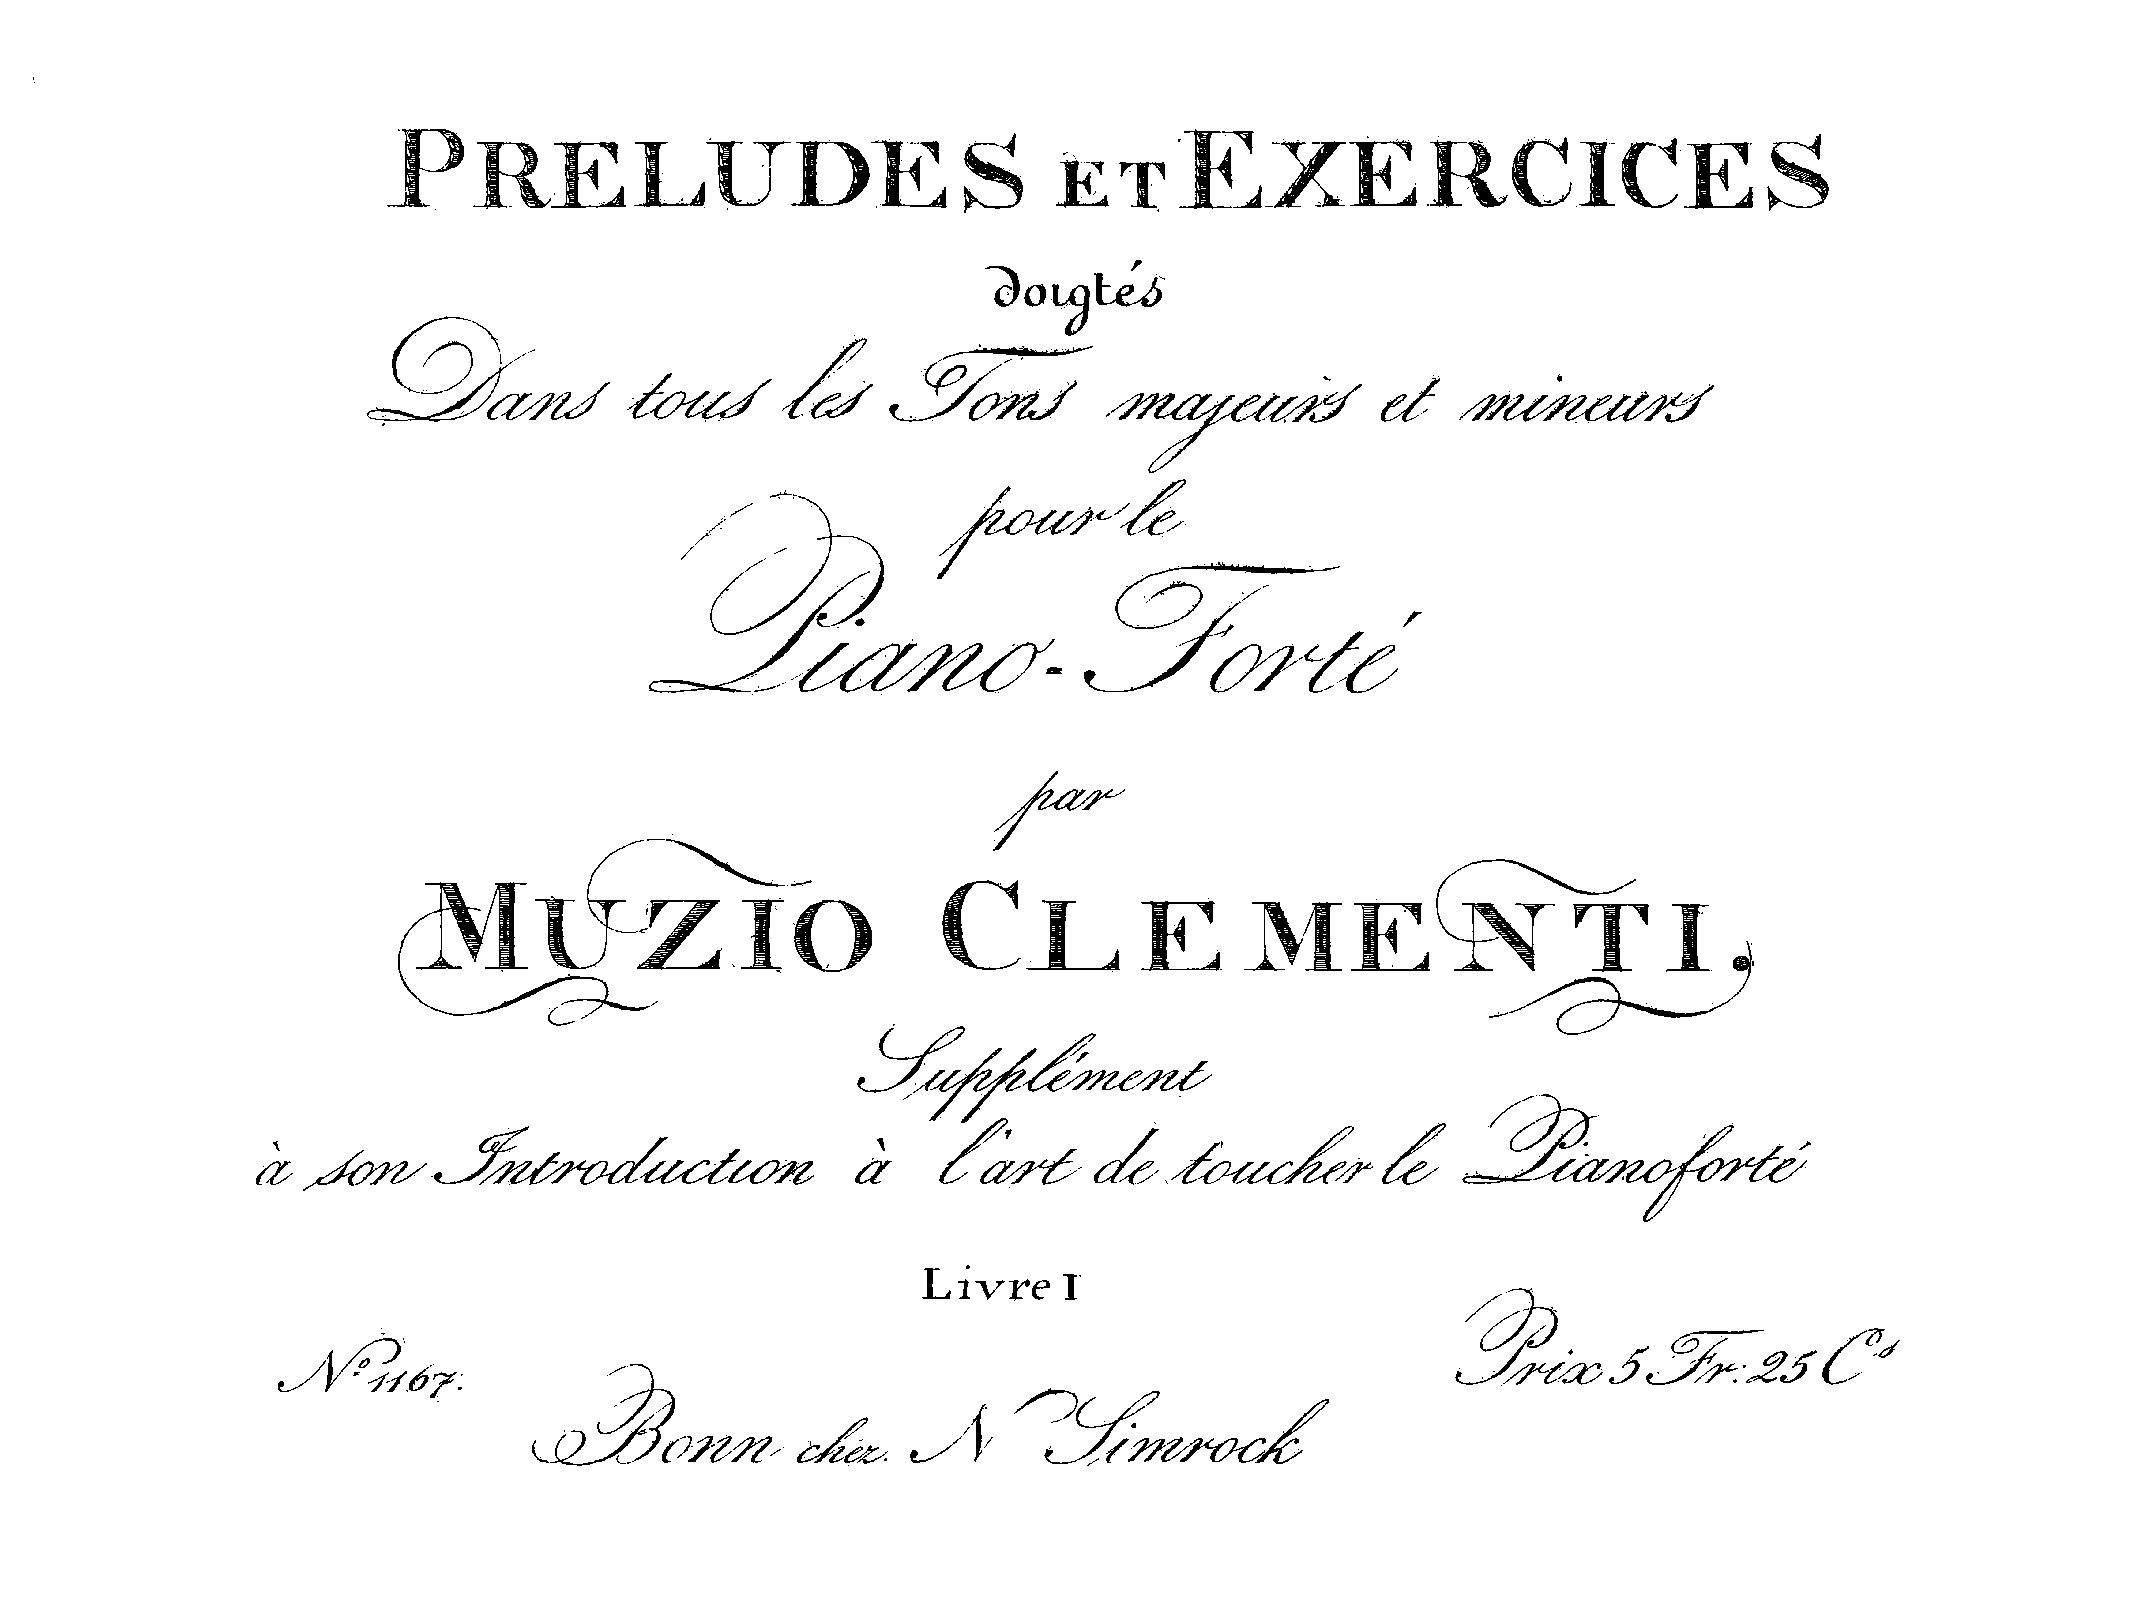 PRELUDES ET EXERCICES
doigtés
Dans tous les Tons majeurs et mineurs
pour le
Piano-Forté
par
MUZIO CLEMENTI.
Supplément
à son Introduction à l'art de toucher le Pianoforté
Livre I
Nº 1167.
Prix 5 Fr: 25 Cs
Bonn chez. N Simrock